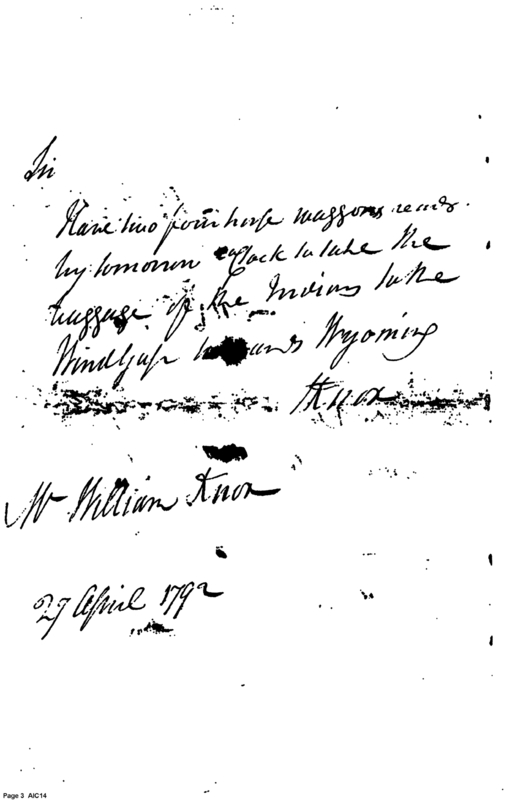 Sir
Have two four horse waggons ready
by tomorrow Clock to take the
baggage of the Indians to the
Wind Gap towards Wyoming
HKnox
Mr William Knox
27 April 1792
Page 3 AIC14